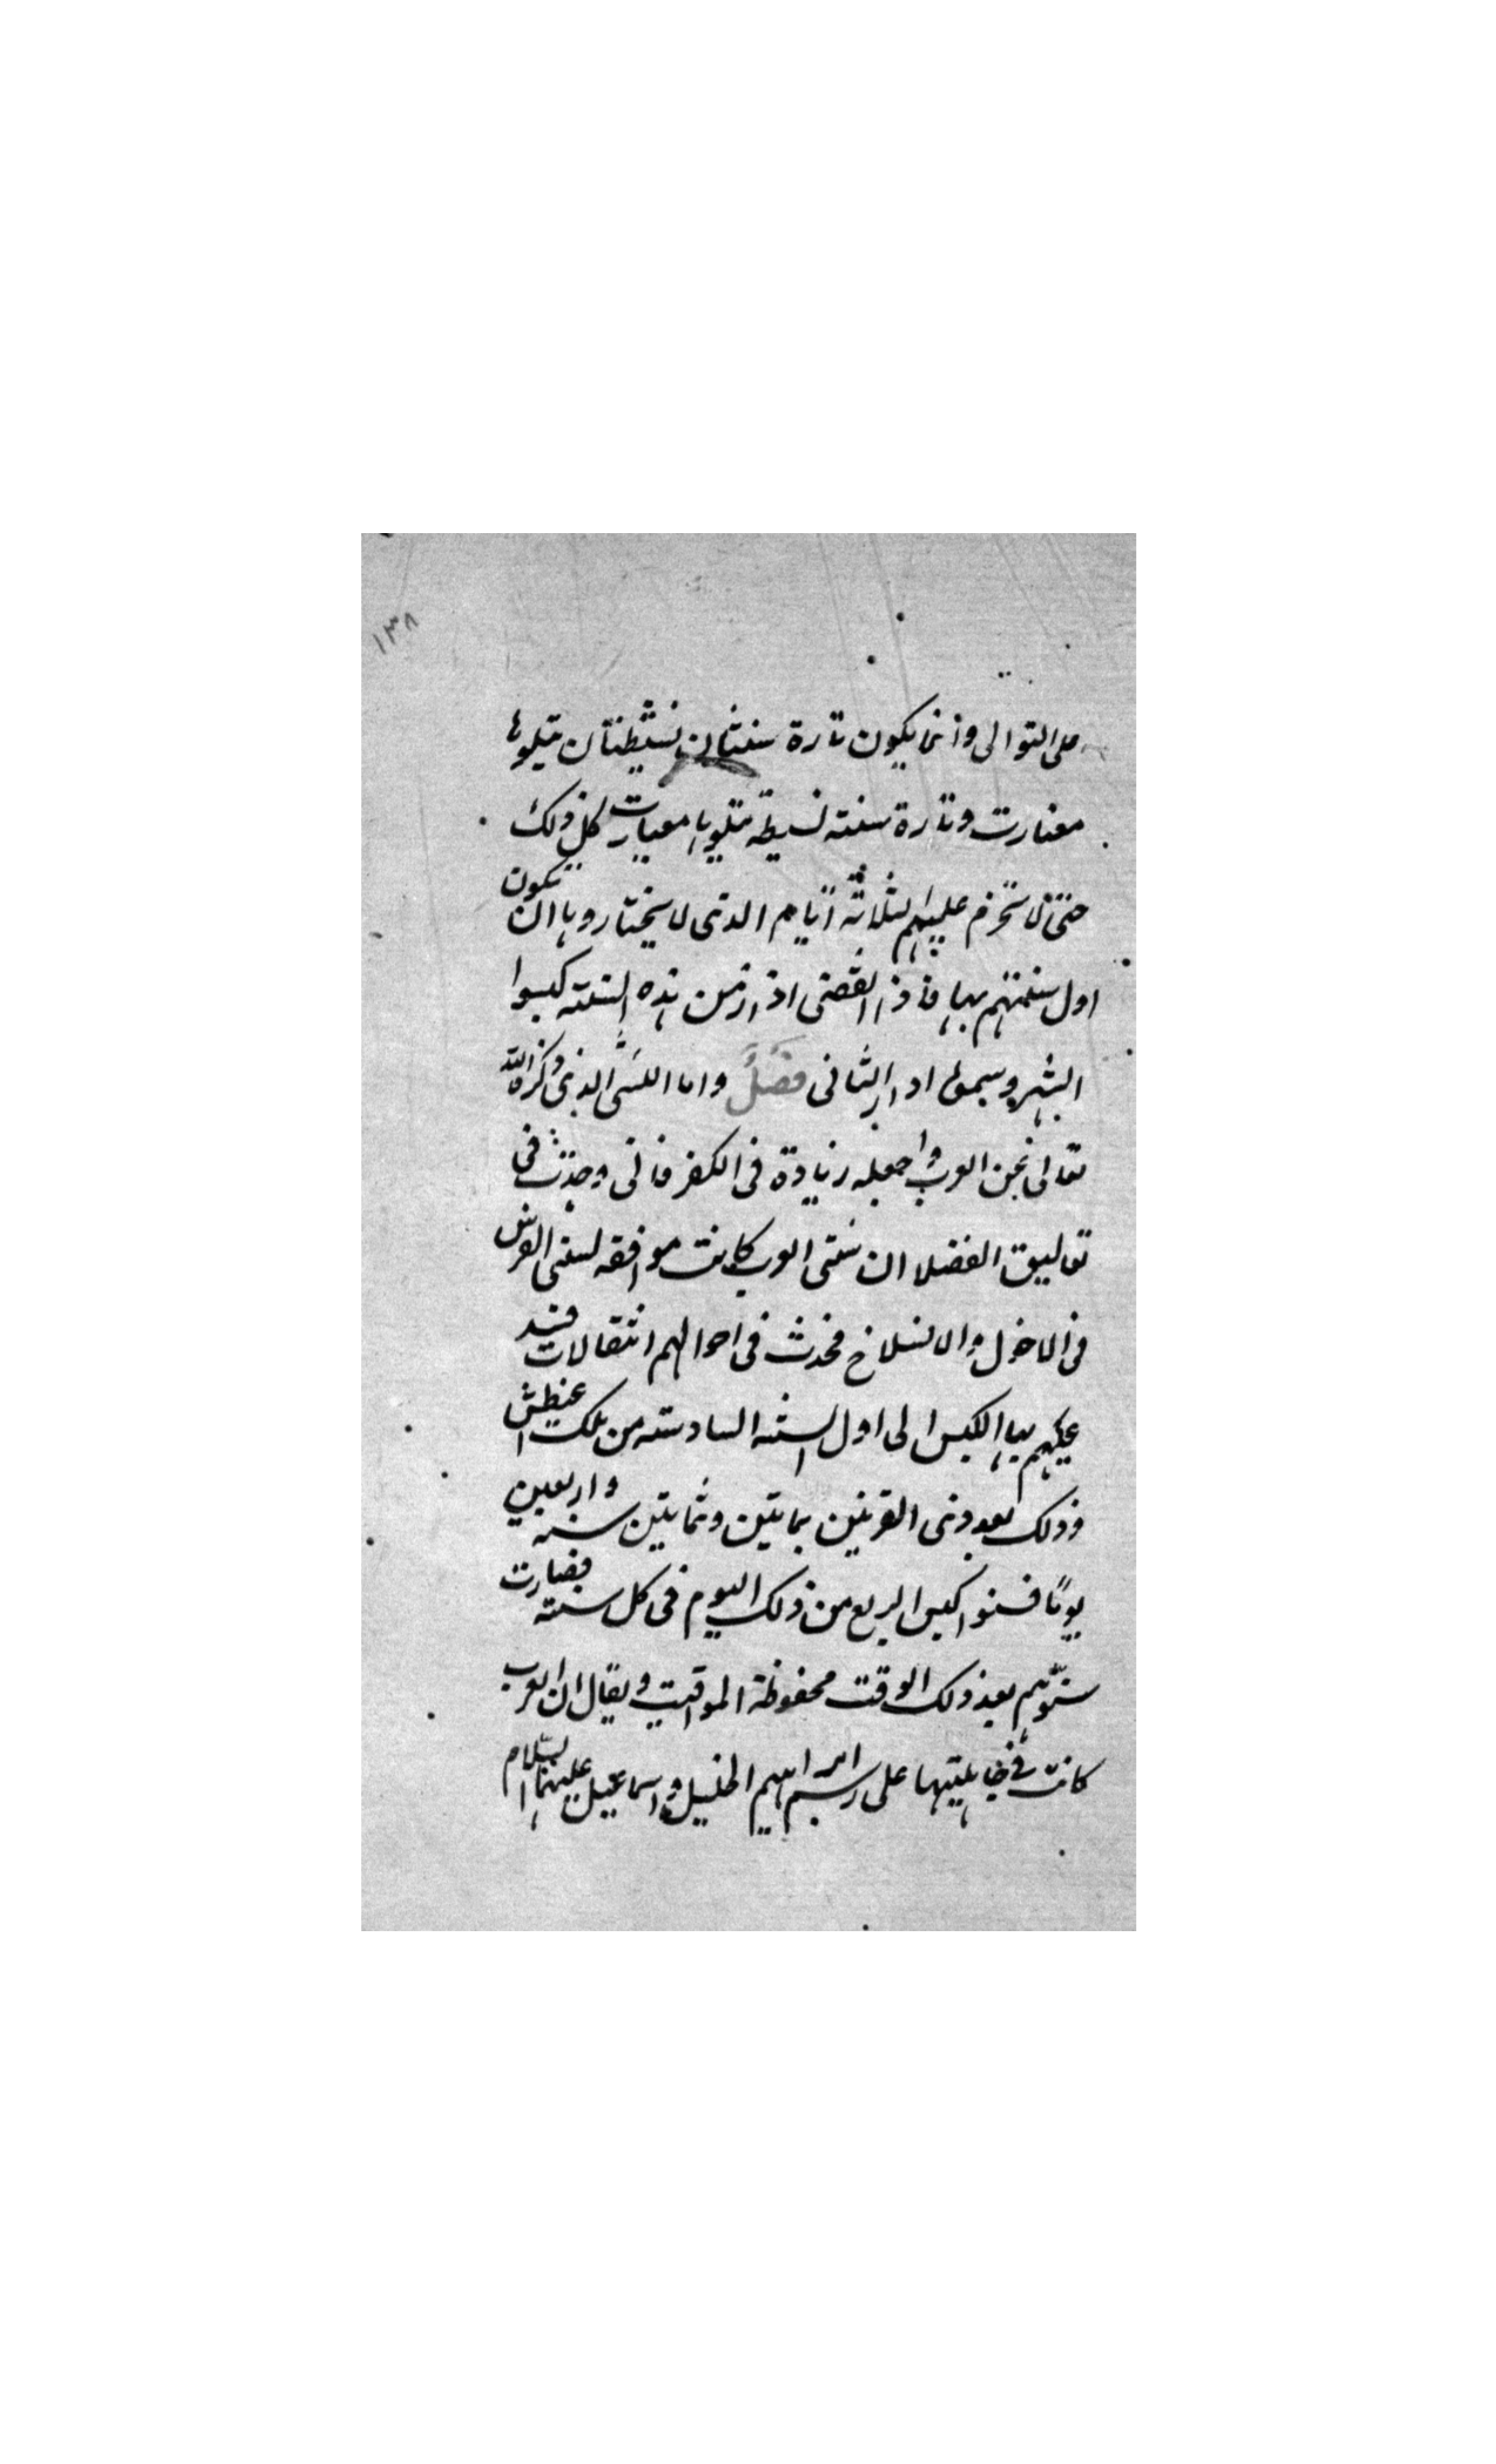 ١٣٨
على التوالى وانما يكون تارة سنتان نسيطتان تيلوها
معبارت وتارة سنته نسيطة تيلوها معبارت كل ذلك
حتى لا تخرم عليهم لثلاثة اتيام الذى لا يختاروها ان تكون
اول سنتهم بها فاذا انقضى اذار من هذه السنته كبسوا
الشهر وسمى ادار الثانى فصل واما النسئ الذى ذكره الله
تعالى عن العرب وجعله زيادة فى الكفر فانى وجدت فى
تعاليق الفضلا ان سنى العرب كانت موافقه لسنى الفرس
فى الدخول والانسلاخ فحدث فى احوالهم انتقالات فسد
عليهم بها الكبس الى اول السنه السادسته من ملك اغنطش
وذلك بعد ذى القرنين بمايتين وثمانين سنه واربعين
يومًا فسنوا كبس الربع من ذلك اليوم فى كل سنته فصارت
سنوّهم بعد ذلك الوقت محفوظة المواقيت ويقال ان العرب
كانت فى جاهليتها على رسم ابراهيم الخليل واسماعيل عليهما السّلام